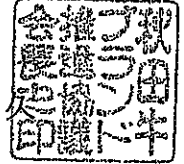 秋田牛
ブランド
推進協議
会長之印